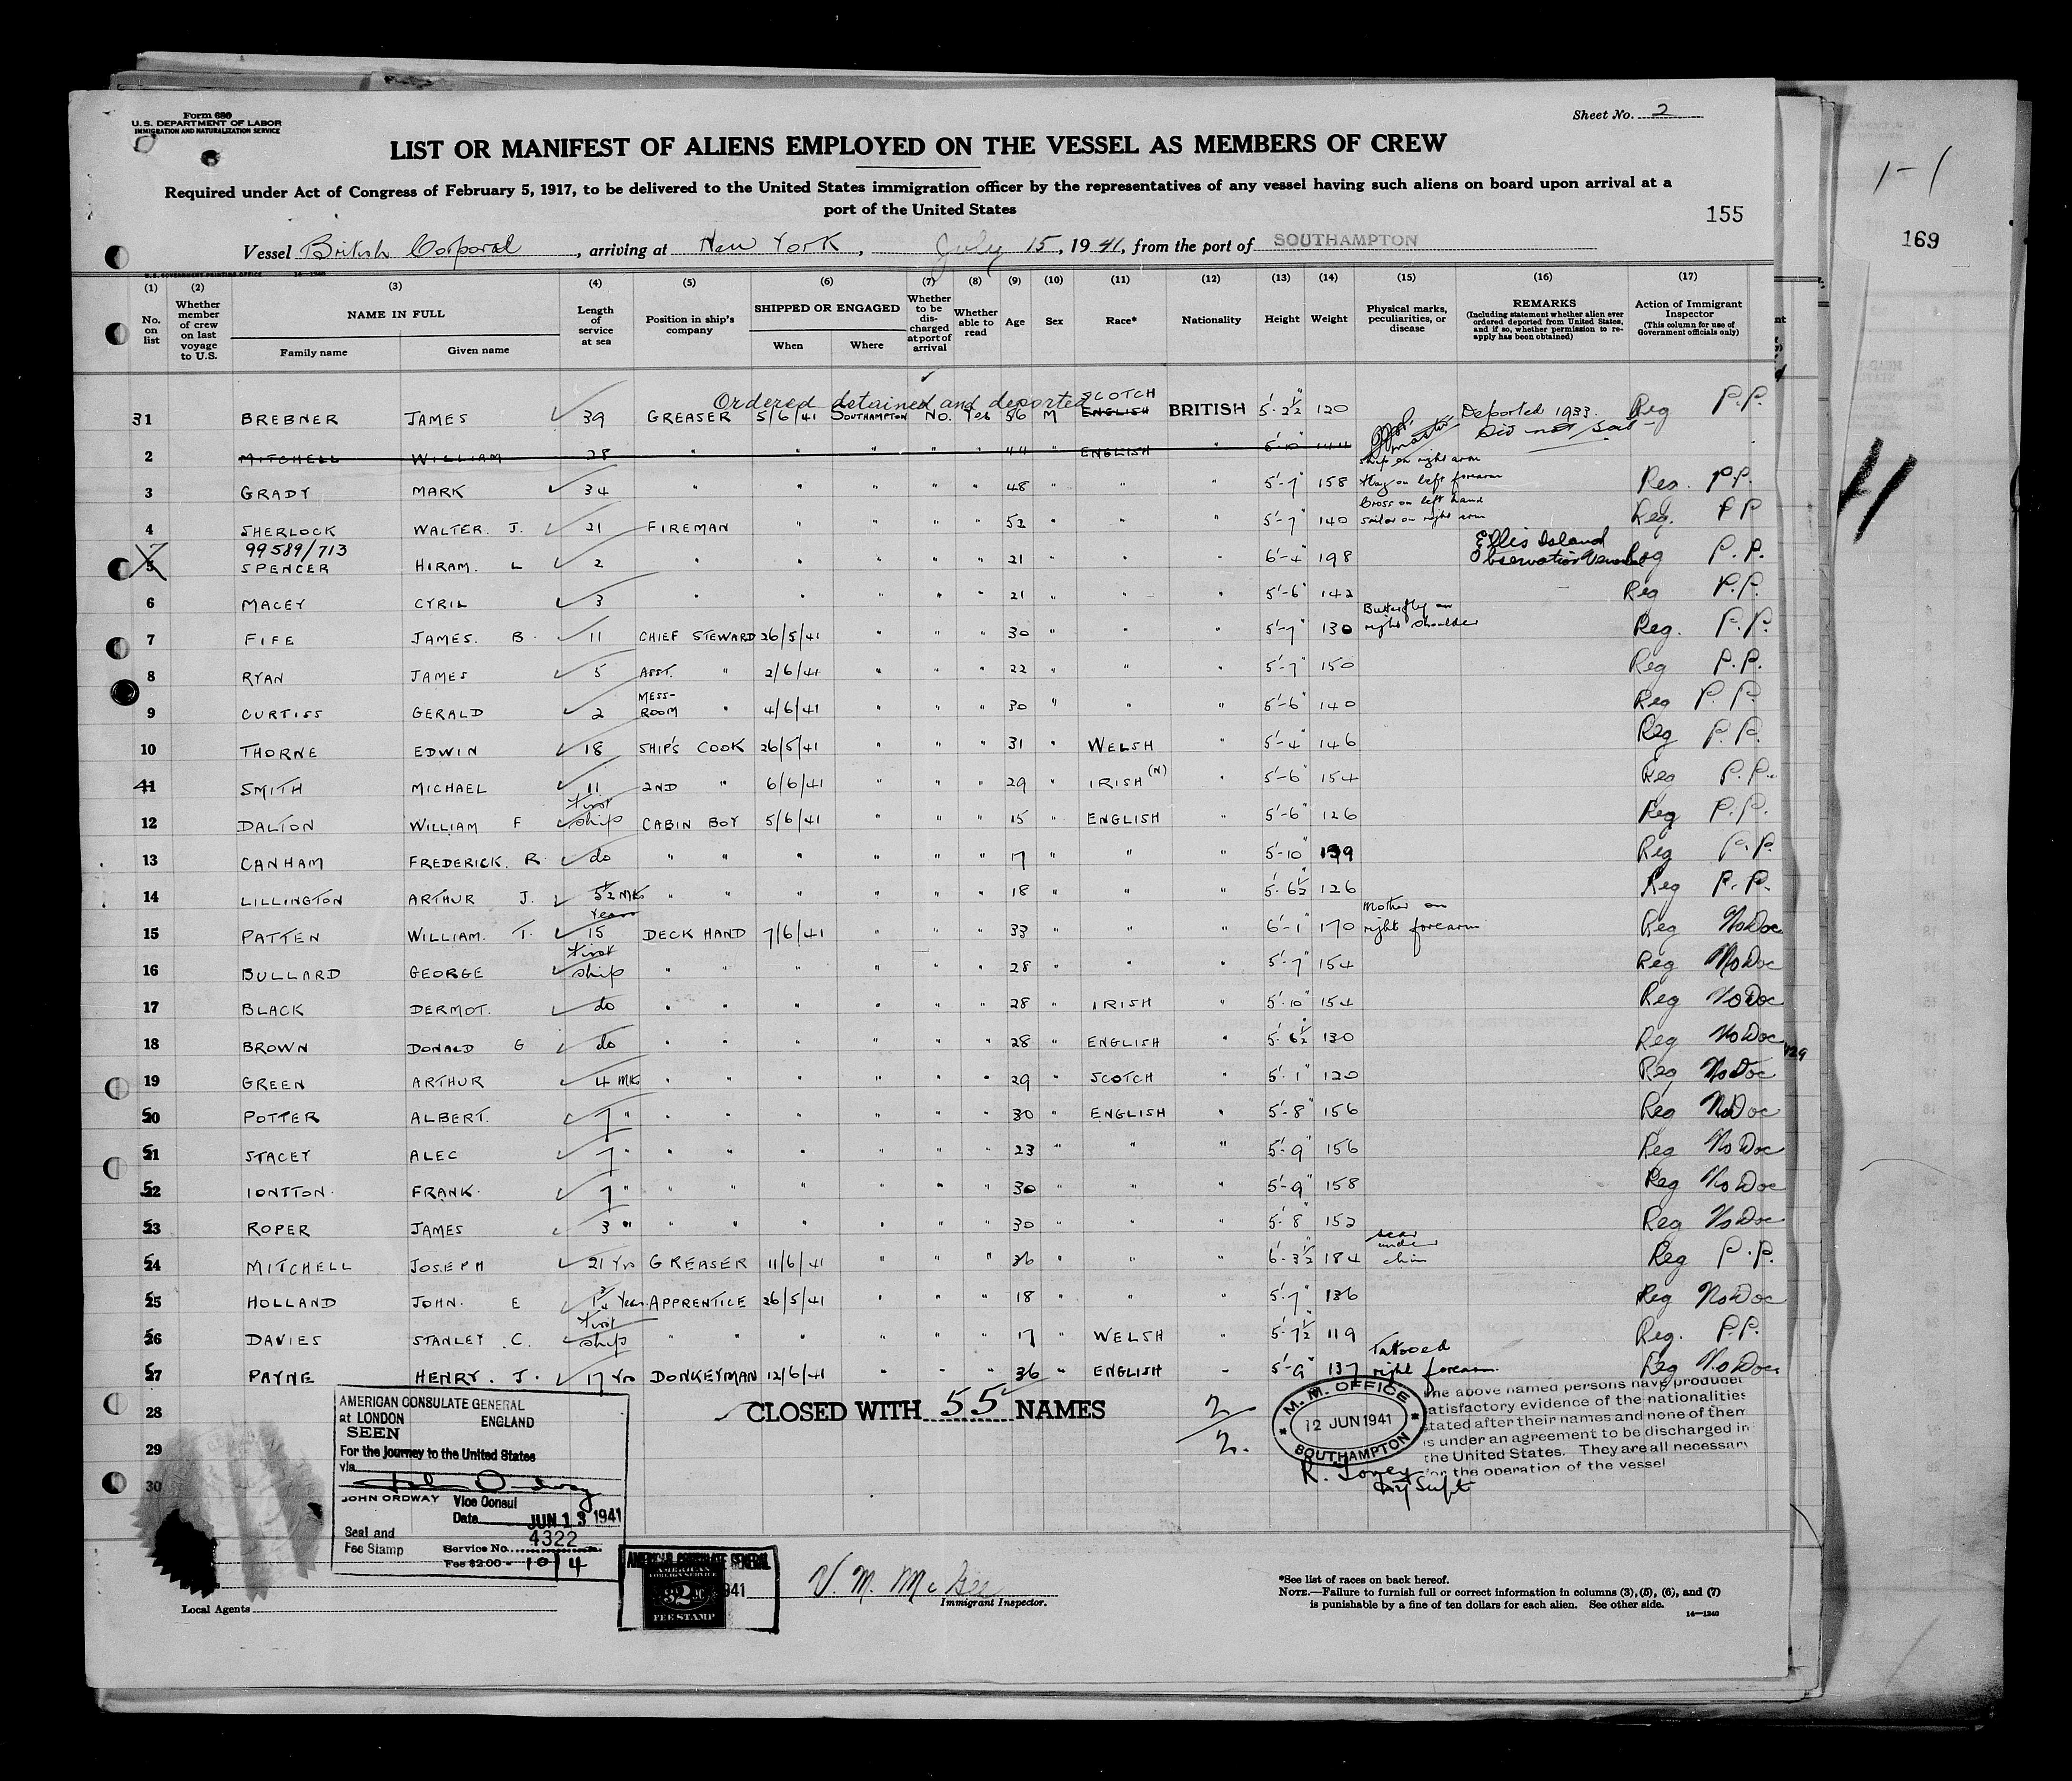 Form 680
U.S. DEPARTMENT OF LABOR
IMMIGRATION AND NATURALIZATION SERVICE
Sheet No. 2
LIST OR MANIFEST OF ALIENS EMPLOYED ON THE VESSEL AS MEMBERS OF CREW
Required under Act of Congress of February 5, 1917, to be delivered to the United States immigration officer by the representatives of any vessel having such aliens on board upon arrival at a
port of the United States
155
1-1
169
Vessel British Corporal, arriving at New York, July 15, 1941, from the port of SOUTHAMPTON
(1) No. on list
(2) Whether member of crew on last voyage to U.S.
(3) NAME IN FULL Family name Given name
(4) Length of service at sea
(5) Position in ship's company
(6) SHIPPED OR ENGAGED When Where
(7) Whether to be discharged at port of arrival
(8) Whether able to read
(9) Age
(10) Sex
(11) Race*
(12) Nationality
(13) Height
(14) Weight
(15) Physical marks, peculiarities, or disease
(16) REMARKS (Including statement whether alien ever ordered deported from United States, and if so, whether permission to re-apply has been obtained)
(17) Action of Immigrant Inspector (This column for use of Government officials only)
Ordered detained and deported SCOTCH
31 BREBNER JAMES 39 GREASER 5/6/41 SOUTHAMPTON NO. Yes 56 M ENGLISH BRITISH 5'-2½" 120 Deported 1933. Reg P.P.
2 MITCHELL WILLIAM 28 " " " " " 44 " ENGLISH " 5'-10" 144 Did not sail
3 GRADY MARK 34 " " " " " 48 " " " 5'-7" 158 ship on right arm flag on left forearm Reg. P.P.
4 SHERLOCK WALTER. J. 21 FIREMAN " " " " 52 " " " 5'-7" 140 Cross on left hand sailor on right arm Reg. P P
99589/713
5 SPENCER HIRAM. L 2 " " " " " 21 " " " 6'-4" 198 Ellis Island Observation Reg P.P.
6 MACEY CYRIL 3 " " " " " 21 " " " 5'-6" 142 Reg P.P.
7 FIFE JAMES. B. 11 CHIEF STEWARD 26/5/41 " " " 30 " " " 5'-7" 130 Butterfly on right shoulder Reg. P.P.
8 RYAN JAMES 5 ASST. " 2/6/41 " " " 22 " " " 5'-7" 150 Reg P.P.
9 CURTISS GERALD 2 MESS-ROOM " 4/6/41 " " " 30 " " " 5'-6" 140 Reg P.P.
10 THORNE EDWIN 18 SHIP'S COOK 26/5/41 " " " 31 " WELSH " 5'-4" 146 Reg P.P.
41 SMITH MICHAEL 11 2ND " 6/6/41 " " " 29 " IRISH (N) " 5'-6" 154 Reg P.P.
12 DALTON WILLIAM F First ship CABIN BOY 5/6/41 " " " 15 " ENGLISH " 5'-6" 126 Reg P.P.
13 CANHAM FREDERICK. R. do " " " " " " 17 " " " 5'-10" 139 Reg P.P.
14 LILLINGTON ARTHUR J. 5½ Mths " " " " " " 18 " " " 5'-6½" 126 Reg P.P.
15 PATTEN WILLIAM. T. Years 15 DECK HAND 7/6/41 " " " 33 " " " 6'-1" 170 Mother on right forearm Reg No Doc
16 BULLARD GEORGE First ship " " " " " " 28 " " " 5'-7" 154 Reg No Doc
17 BLACK DERMOT. do " " " " " " 28 " IRISH " 5'-10" 154 Reg No Doc
18 BROWN DONALD G do " " " " " " 28 " ENGLISH " 5'-6½" 130 Reg No Doc
19 GREEN ARTHUR 4 Mths " " " " " " 29 " SCOTCH " 5'-1" 120 Reg No Doc
50 POTTER ALBERT. 7 " " " " " " " 30 " ENGLISH " 5'-8" 156 Reg No Doc
51 STACEY ALEC 7 " " " " " " " 23 " " " 5'-9" 156 Reg No Doc
52 IONTTON. FRANK. 7 " " " " " " " 30 " " " 5'-9" 158 Reg No Doc
53 ROPER JAMES 3 " " " " " " " 30 " " " 5'-8" 152 Reg No Doc
54 MITCHELL JOSEPH 21 Yrs GREASER 11/6/41 " " " 36 " " " 6'-3½" 184 scar under chin Reg P.P.
55 HOLLAND JOHN. E 1¾ Years APPRENTICE 26/5/41 " " " 18 " " " 5'-7" 136 Reg No Doc
56 DAVIES STANLEY. C. First ship " " " " " " 17 " WELSH " 5'-7½" 119 Reg. P.P.
57 PAYNE HENRY. J. 17 Yrs DONKEYMAN 12/6/41 " " " 36 " ENGLISH " 5'-9" 137 Tattooed right forearm Reg No Doc
28
29
30
CLOSED WITH 55 NAMES
2/2.
AMERICAN CONSULATE GENERAL
at LONDON ENGLAND
SEEN
For the journey to the United States
via
John Ordway
JOHN ORDWAY Vice Consul
Date JUN 13 1941
Seal and Fee Stamp
Service No. 4322
Fee $2.00 = 10/4
M.M. OFFICE
12 JUN 1941
SOUTHAMPTON
The above named persons have produced
satisfactory evidence of the nationalities
stated after their names and none of them
is under an agreement to be discharged in
the United States. They are all necessary
for the operation of the vessel
Supt
AMERICAN CONSULATE GENERAL
AMERICAN FOREIGN SERVICE
$2.00
FEE STAMP
1941
V. M. McGee
Immigrant Inspector.
Local Agents
*See list of races on back hereof.
NOTE.—Failure to furnish full or correct information in columns (3), (5), (6), and (7)
is punishable by a fine of ten dollars for each alien. See other side.
14—1240